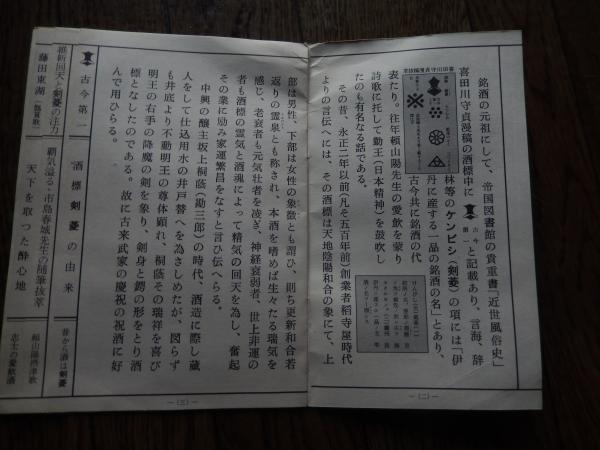 銘酒の元祖にして、帝国図書館の貴重書「近世風俗史」
喜田川守貞漫稿の酒標中に
古今第一
と記載あり、言海、辞
林等のケンビシ（剣菱）の項には「伊
丹に産する一品の銘酒の名」とあり、
古今共に銘酒の代
表たり。往年頼山陽先生の愛飲を蒙り
詩歌に托して勤王（日本精神）を鼓吹し
たのも有名なる話である。
その昔、永正二年以前（凡そ五百年前）創業者稲寺屋時代
よりの言伝へには、その酒標は天地陰陽和合の象にて、上
―（二）―
部は男性、下部は女性の象数とも謂ひ、則ち更新和合若
返りの霊泉とも称され、本酒を嗜めば生々たる瑞気を
感じ、老衰者も元気壮者を凌ぎ、神経衰弱者、世上非運の
者も酒標の霊気と酒魂によって精気の回天を為し、奮起
その業に励み家運繁昌をなすと言ひ伝へらる。
中興の醸主坂上桐蔭（勘三郎）の時代、酒造に際し蔵
人をして仕込用水の井戸替へを為さしめたが、図らず
も井底より不動明王の尊体顕れ、桐蔭その瑞祥を喜び
明王の右手の降魔の剣を象り、剣身と鍔の形をとり酒
標となしたのである。故に古来武家の慶祝の祝酒に好
んで用ひらる。
―（三）―
古今第一
酒標剣菱の由来
昔から酒は剣菱
維新回天と剣菱の注力
覇気溢る・市島春城先生の随筆抜萃
頼山陽酒津歌
藤田東湖
天下を取つた酔心地
志士の愛飲酒